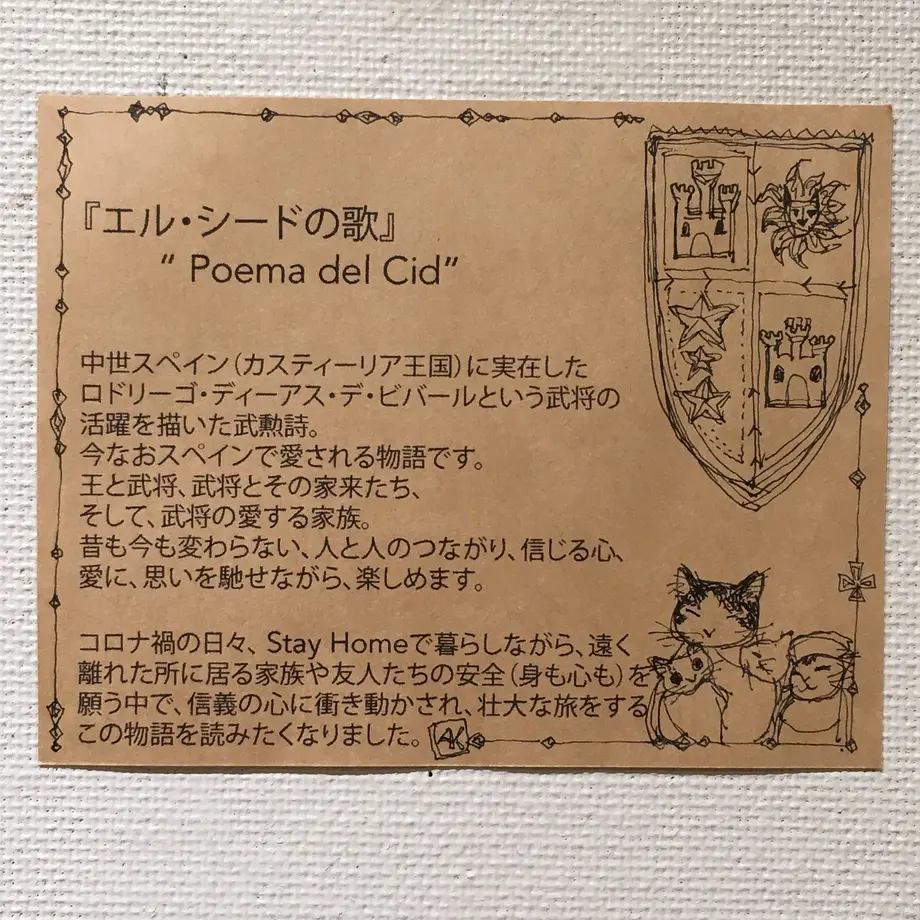 『エル・シードの歌』
“ Poema del Cid”
中世スペイン（カスティーリア王国）に実在した
ロドリーゴ・ディーアス・デ・ビバールという武将の
活躍を描いた武勲詩。
今なおスペインで愛される物語です。
王と武将、武将とその家来たち、
そして、武将の愛する家族。
昔も今も変わらない、人と人のつながり、信じる心、
愛に、思いを馳せながら、楽しめます。
コロナ禍の日々、Stay Homeで暮らしながら、遠く
離れた所に居る家族や友人たちの安全（身も心も）を
願う中で、信義の心に衝き動かされ、壮大な旅をする
この物語を読みたくなりました。
AK